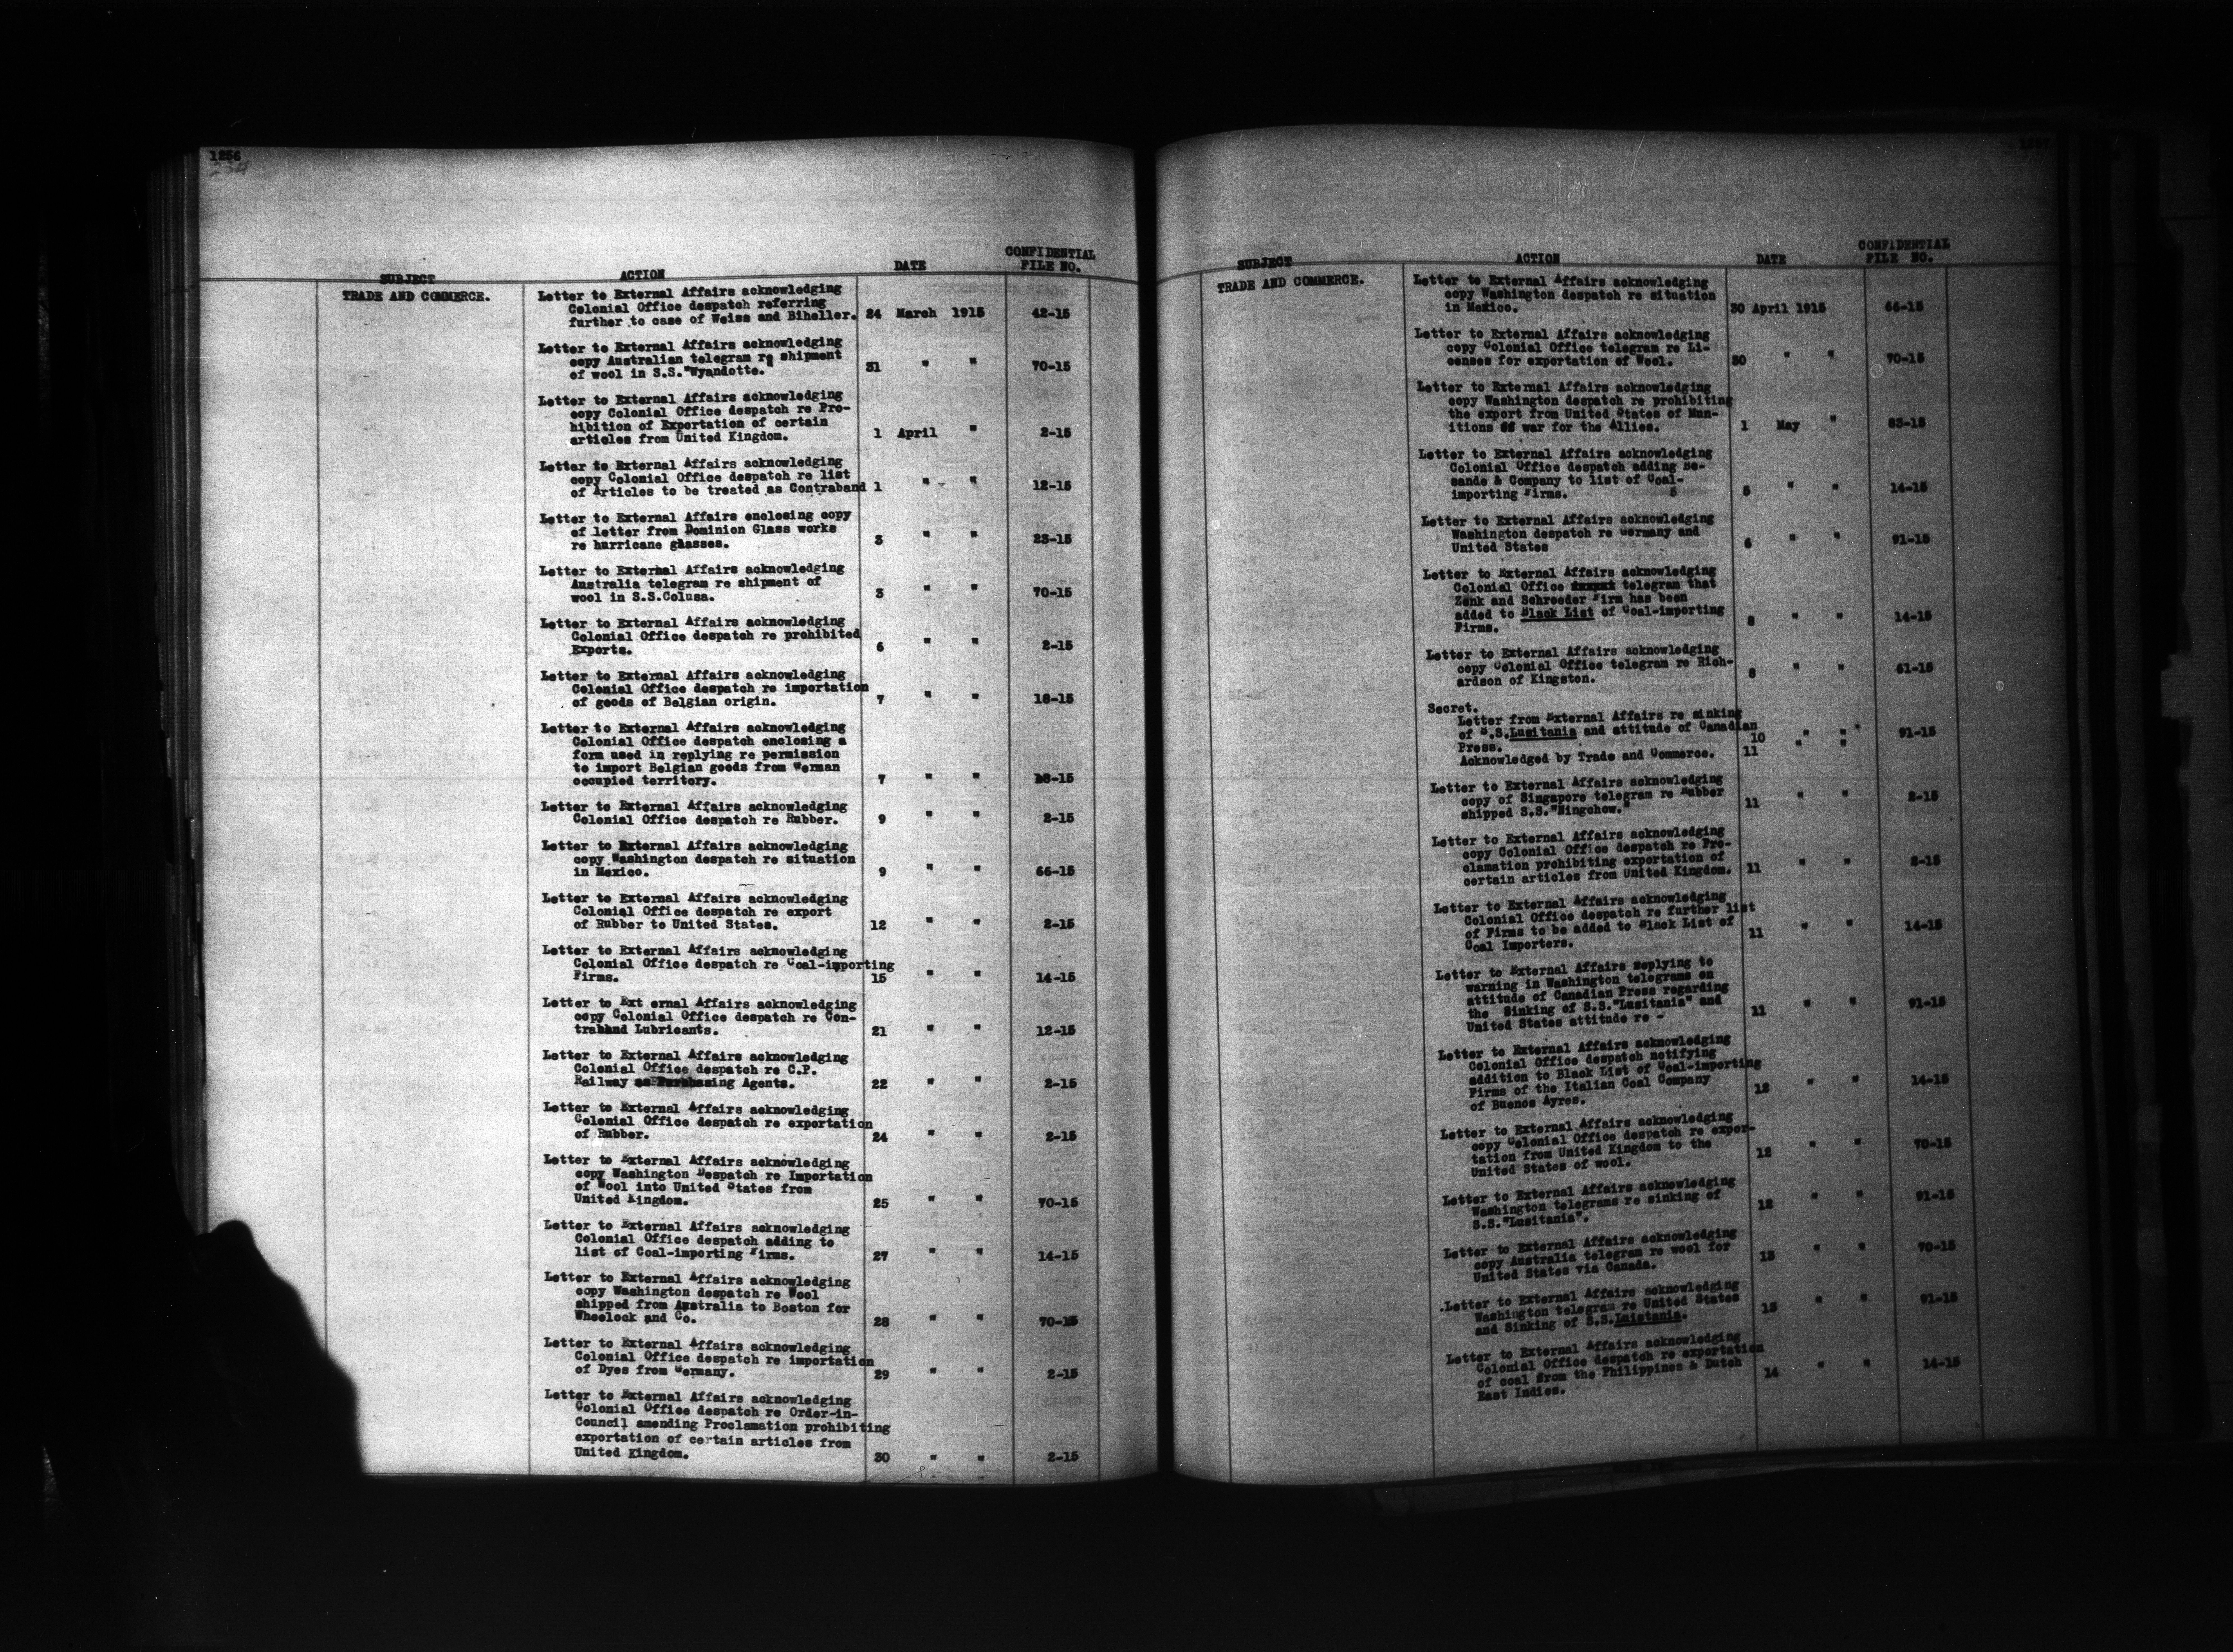 1256
234
SUBJECT ACTION DATE CONFIDENTIAL FILE NO.
TRADE AND COMMERCE.
Letter to External Affairs acknowledging
Colonial Office despatch referring
further to case of Weiss and Biheller. 24 March 1915 42-15
Letter to External Affairs acknowledging
copy Australian telegram re shipment
of wool in S.S."Wyandotte." 31 " " 70-15
Letter to External Affairs acknowledging
copy Colonial Office despatch re Pro-
hibition of Exportation of certain
articles from United Kingdom. 1 April " 2-15
Letter to External Affairs acknowledging
copy Colonial Office despatch re list
of Articles to be treated as Contraband 1 " " 12-15
Letter to External Affairs enclosing copy
of letter from Dominion Glass works
re hurricane glasses. 3 " " 23-15
Letter to External Affairs acknowledging
Australia telegram re shipment of
wool in S.S.Colusa. 3 " " 70-15
Letter to External Affairs acknowledging
Colonial Office despatch re prohibited
Exports. 6 " " 2-15
Letter to External Affairs acknowledging
Colonial Office despatch re importation
of goods of Belgian origin. 7 " " 18-15
Letter to External Affairs acknowledging
Colonial Office despatch enclosing a
form used in replying re permission
to import Belgian goods from German
occupied territory. 7 " " 18-15
Letter to External Affairs acknowledging
Colonial Office despatch re Rubber. 9 " " 2-15
Letter to External Affairs acknowledging
copy Washington despatch re situation
in Mexico. 9 " " 66-15
Letter to External Affairs acknowledging
Colonial Office despatch re export
of Rubber to United States. 12 " " 2-15
Letter to External Affairs acknowledging
Colonial Office despatch re Coal-importing
Firms. 15 " " 14-15
Letter to Ext ernal Affairs acknowledging
copy Colonial Office despatch re Con-
traband Lubricants. 21 " " 12-15
Letter to External Affairs acknowledging
Colonial Office despatch re C.P.
Railway as Purchasing Agents. 22 " " 2-15
Letter to External Affairs acknowledging
Colonial Office despatch re exportation
of Rubber. 24 " " 2-15
Letter to External Affairs acknowledging
copy Washington Despatch re Importation
of Wool into United States from
United Kingdom. 25 " " 70-15
Letter to External Affairs acknowledging
Colonial Office despatch adding to
list of Coal-importing Firms. 27 " " 14-15
Letter to External Affairs acknowledging
copy Washington despatch re Wool
shipped from Australia to Boston for
Wheelock and Co. 28 " " 70-15
Letter to External Affairs acknowledging
Colonial Office despatch re importation
of Dyes from Germany. 29 " " 2-15
Letter to External Affairs acknowledging
Colonial Office despatch re Order-in-
Council amending Proclamation prohibiting
exportation of certain articles from
United Kingdom. 30 " " 2-15
SUBJECT ACTION DATE CONFIDENTIAL FILE NO.
TRADE AND COMMERCE.
Letter to External Affairs acknowledging
copy Washington despatch re situation
in Mexico. 30 April 1915 66-15
Letter to External Affairs acknowledging
copy Colonial Office telegram re Li-
censes for exportation of Wool. 30 " " 70-15
Letter to External Affairs acknowledging
copy Washington despatch re prohibiting
the export from United States of Mun-
itions of war for the Allies. 1 May " 83-15
Letter to External Affairs acknowledging
Colonial Office despatch adding Be-
sande & Company to list of Coal-
importing Firms. 5 5 " " 14-15
Letter to External Affairs acknowledging
Washington despatch re Germany and
United States 6 " " 91-15
Letter to External Affairs acknowledging
Colonial Office telegram that
Zenk and Schroeder Firm has been
added to Black List of Coal-importing
Firms. 8 " " 14-15
Letter to External Affairs acknowledging
copy Colonial Office telegram re Rich-
ardson of Kingston. 8 " " 61-15
Secret.
Letter from External Affairs re sinking
of S.S.Lusitania and attitude of Canadian
Press. 10 " " 91-15
Acknowledged by Trade and Commerce. 11 " "
Letter to External Affairs acknowledging
copy of Singapore telegram re Rubber
shipped S.S."Ningchow." 11 " " 2-15
Letter to External Affairs acknowledging
copy Colonial Office despatch re Pro-
clamation prohibiting exportation of
certain articles from United Kingdom. 11 " " 2-15
Letter to External Affairs acknowledging
Colonial Office despatch re further list
of Firms to be added to Black List of
Coal Importers. 11 " " 14-15
Letter to External Affairs replying to
warning in Washington telegrams on
attitude of Canadian Press regarding
the Sinking of S.S."Lusitania" and
United States attitude re - 11 " " 91-15
Letter to External Affairs acknowledging
Colonial Office despatch notifying
addition to Black List of Coal-importing
Firms of the Italian Coal Company
of Buenos Ayres. 12 " " 14-15
Letter to External Affairs acknowledging
copy Colonial Office despatch re expor-
tation from United Kingdom to the
United States of wool. 12 " " 70-15
Letter to External Affairs acknowledging
Washington telegrams re sinking of
S.S."Lusitania". 12 " " 91-15
Letter to External Affairs acknowledging
copy Australia telegram re wool for
United States via Canada. 13 " " 70-15
Letter to External Affairs acknowledging
Washington telegram re United States
and Sinking of S.S.Luistania. 13 " " 91-15
Letter to External Affairs acknowledging
Colonial Office despatch re exportation
of coal from the Philippines & Dutch
East Indies. 14 " " 14-15